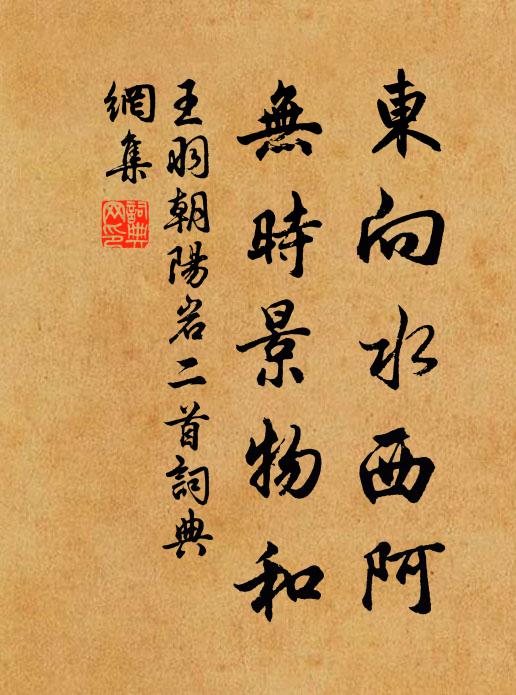 東向水西阿
無時景物和
王羽朝陽岩二首詞典
網集
詞典
網印